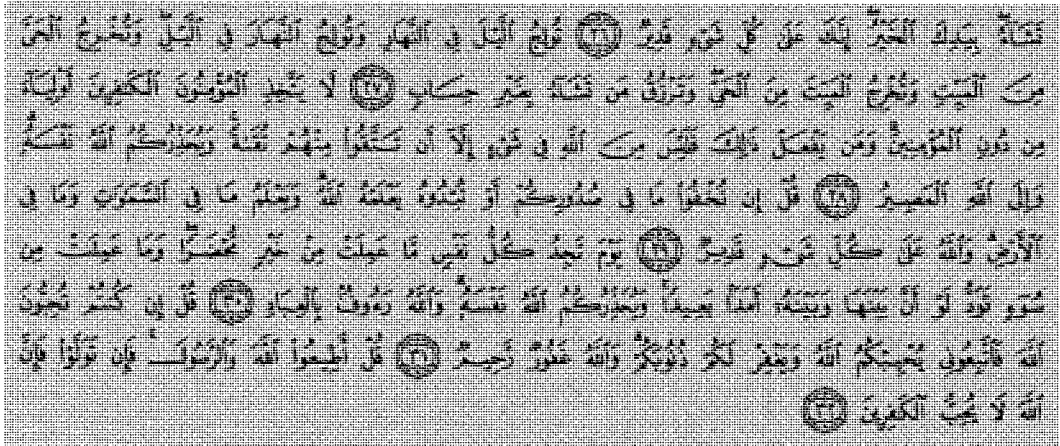 تَشَآءُ ۖ بِيَدِكَ ٱلْخَيْرُ ۖ إِنَّكَ عَلَىٰ كُلِّ شَىْءٍ قَدِيرٌ ﴿٢٦﴾ تُولِجُ ٱلَّيْلَ فِى ٱلنَّهَارِ وَتُولِجُ ٱلنَّهَارَ فِى ٱلَّيْلِ ۖ وَتُخْرِجُ ٱلْحَىَّ
مِنَ ٱلْمَيِّتِ وَتُخْرِجُ ٱلْمَيِّتَ مِنَ ٱلْحَىِّ ۖ وَتَرْزُقُ مَن تَشَآءُ بِغَيْرِ حِسَابٍ ﴿٢٧﴾ لَّا يَتَّخِذِ ٱلْمُؤْمِنُونَ ٱلْكَٰفِرِينَ أَوْلِيَآءَ
مِن دُونِ ٱلْمُؤْمِنِينَ ۖ وَمَن يَفْعَلْ ذَٰلِكَ فَلَيْسَ مِنَ ٱللَّهِ فِى شَىْءٍ إِلَّآ أَن تَتَّقُوا۟ مِنْهُمْ تُقَىٰةً ۗ وَيُحَذِّرُكُمُ ٱللَّهُ نَفْسَهُۥ ۗ
وَإِلَى ٱللَّهِ ٱلْمَصِيرُ ﴿٢٨﴾ قُلْ إِن تُخْفُوا۟ مَا فِى صُدُورِكُمْ أَوْ تُبْدُوهُ يَعْلَمْهُ ٱللَّهُ ۗ وَيَعْلَمُ مَا فِى ٱلسَّمَٰوَٰتِ وَمَا فِى
ٱلْأَرْضِ ۗ وَٱللَّهُ عَلَىٰ كُلِّ شَىْءٍ قَدِيرٌ ﴿٢٩﴾ يَوْمَ تَجِدُ كُلُّ نَفْسٍ مَّا عَمِلَتْ مِنْ خَيْرٍ مُّحْضَرًا وَمَا عَمِلَتْ مِن
سُوٓءٍ تَوَدُّ لَوْ أَنَّ بَيْنَهَا وَبَيْنَهُۥٓ أَمَدًۢا بَعِيدًا ۗ وَيُحَذِّرُكُمُ ٱللَّهُ نَفْسَهُۥ ۗ وَٱللَّهُ رَءُوفٌۢ بِٱلْعِبَادِ ﴿٣٠﴾ قُلْ إِن كُنتُمْ تُحِبُّونَ
ٱللَّهَ فَٱتَّبِعُونِى يُحْبِبْكُمُ ٱللَّهُ وَيَغْفِرْ لَكُمْ ذُنُوبَكُمْ ۗ وَٱللَّهُ غَفُورٌ رَّحِيمٌ ﴿٣١﴾ قُلْ أَطِيعُوا۟ ٱللَّهَ وَٱلرَّسُولَ ۖ فَإِن تَوَلَّوْا۟ فَإِنَّ
ٱللَّهَ لَا يُحِبُّ ٱلْكَٰفِرِينَ ﴿٣٢﴾